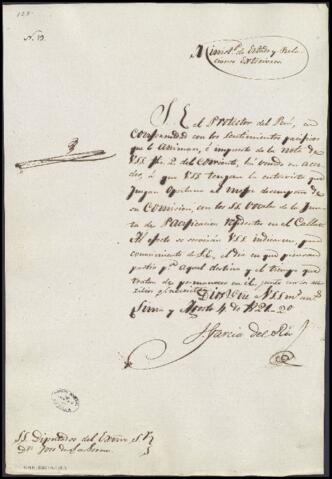 Ministº. de Estado y Rela
ciones Exteriores
S. E. el Protector del Perú, en
conformidad con los sentimientos pacíficos
que lo animan, é impuesto de la nota de
VSS fha. 2 del corriente, ha venido en acce
der, á que VSS tengan la entrevista que
juzgan oportuna en mejor desempeño de
su Comision, con los SS. Vocales de la Jun
ta de Pacificacion residente en el Callao.
Al efecto se servirán VSS indicarme para
conocimiento de S.E. el dia en que piensan
partir pª. aquel destino y el tiempo que
tratan de permanecer en él
Dios gue. á VSS ms. ans.
Lima y Agosto 4 de 1821. 2º
J. Garcia del Rio
SS. Diputados del Exmo. Sr.
Dn. José de La Serna